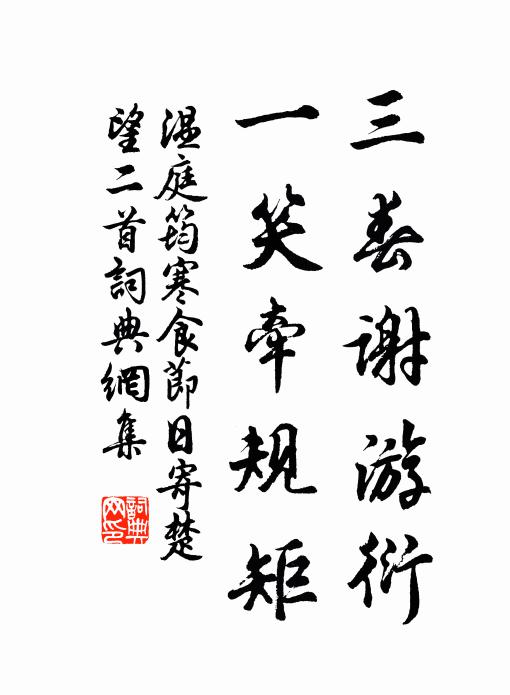 三春謝游衍
一笑牽規矩
温庭筠寒食節日寄楚
望二首詞典網集
詞典網印